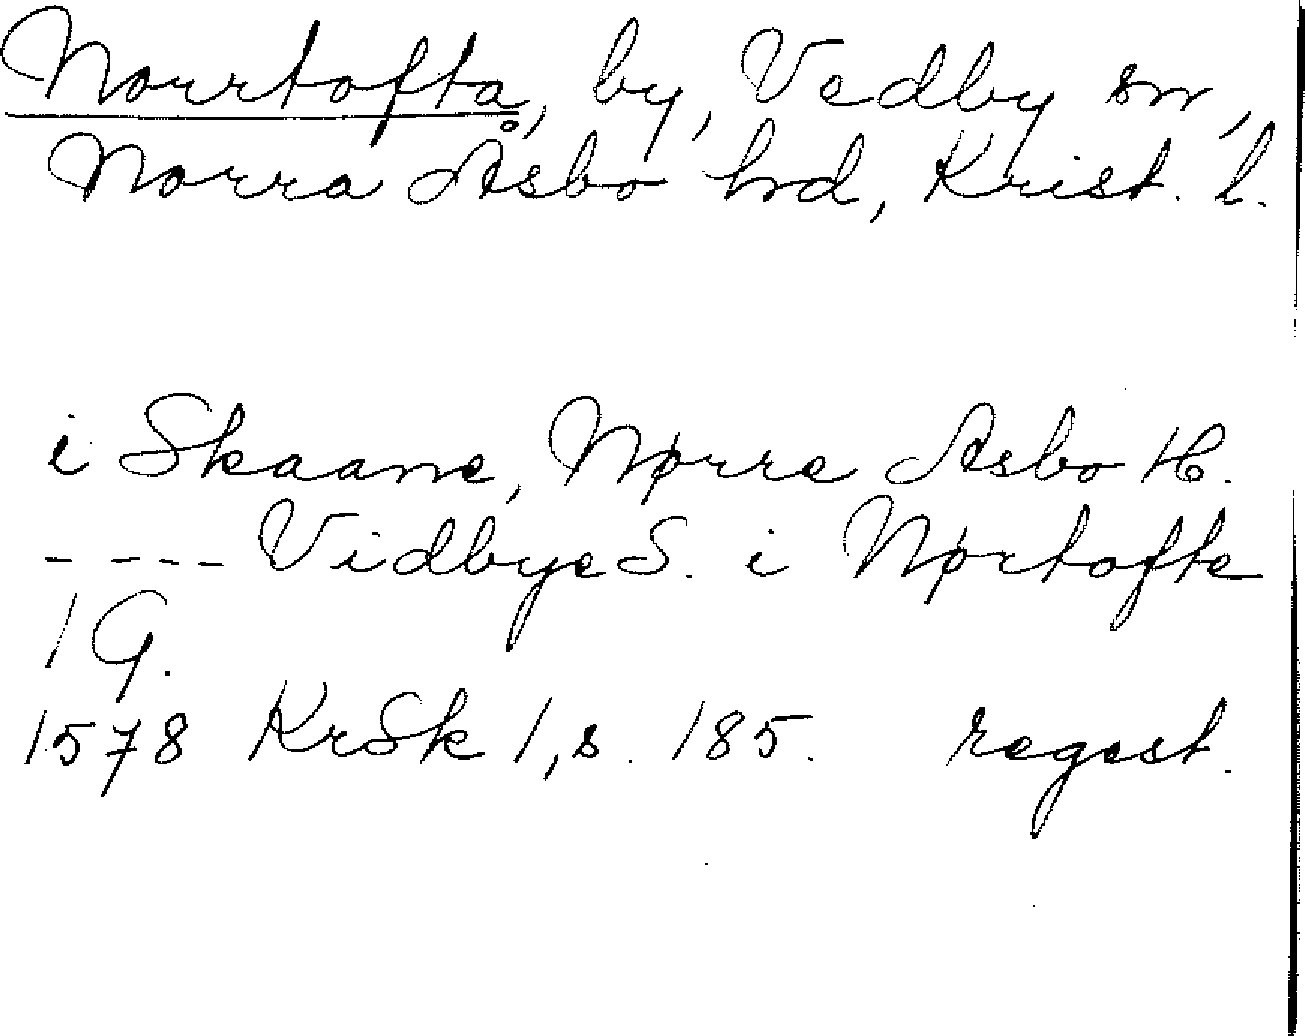 Norrtofta, by, Vedby sn,
Norra Åsbo hd, Krist. l.
i Skaane, Nørre Asbo H.
---- Vidbye S. i Nørtofte
1 G.
1578 KrSk 1, s. 185. regest.